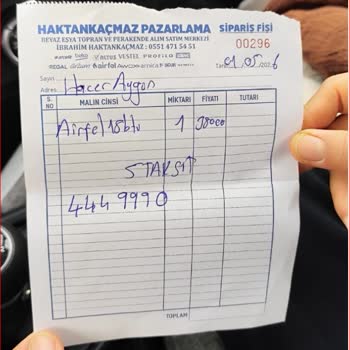 HAKTANKAÇMAZ PAZARLAMA SİPARİŞ FİŞİ
BEYAZ EŞYA TOPTAN VE PERAKENDE ALIM SATIM MERKEZİ
İBRAHİM HAKTANKAÇMAZ : 0551 471 54 51
00296
VESTEL PROFİLO
REGAL airfel
Sayın: Hacer Aygün
Tarih: 01.05.2026
Adres:
S. NO MALIN CİNSİ MİKTARI FİYATI TUTARI
Airfel 18btu 1
5 TAKSİT
444 9990
TOPLAM